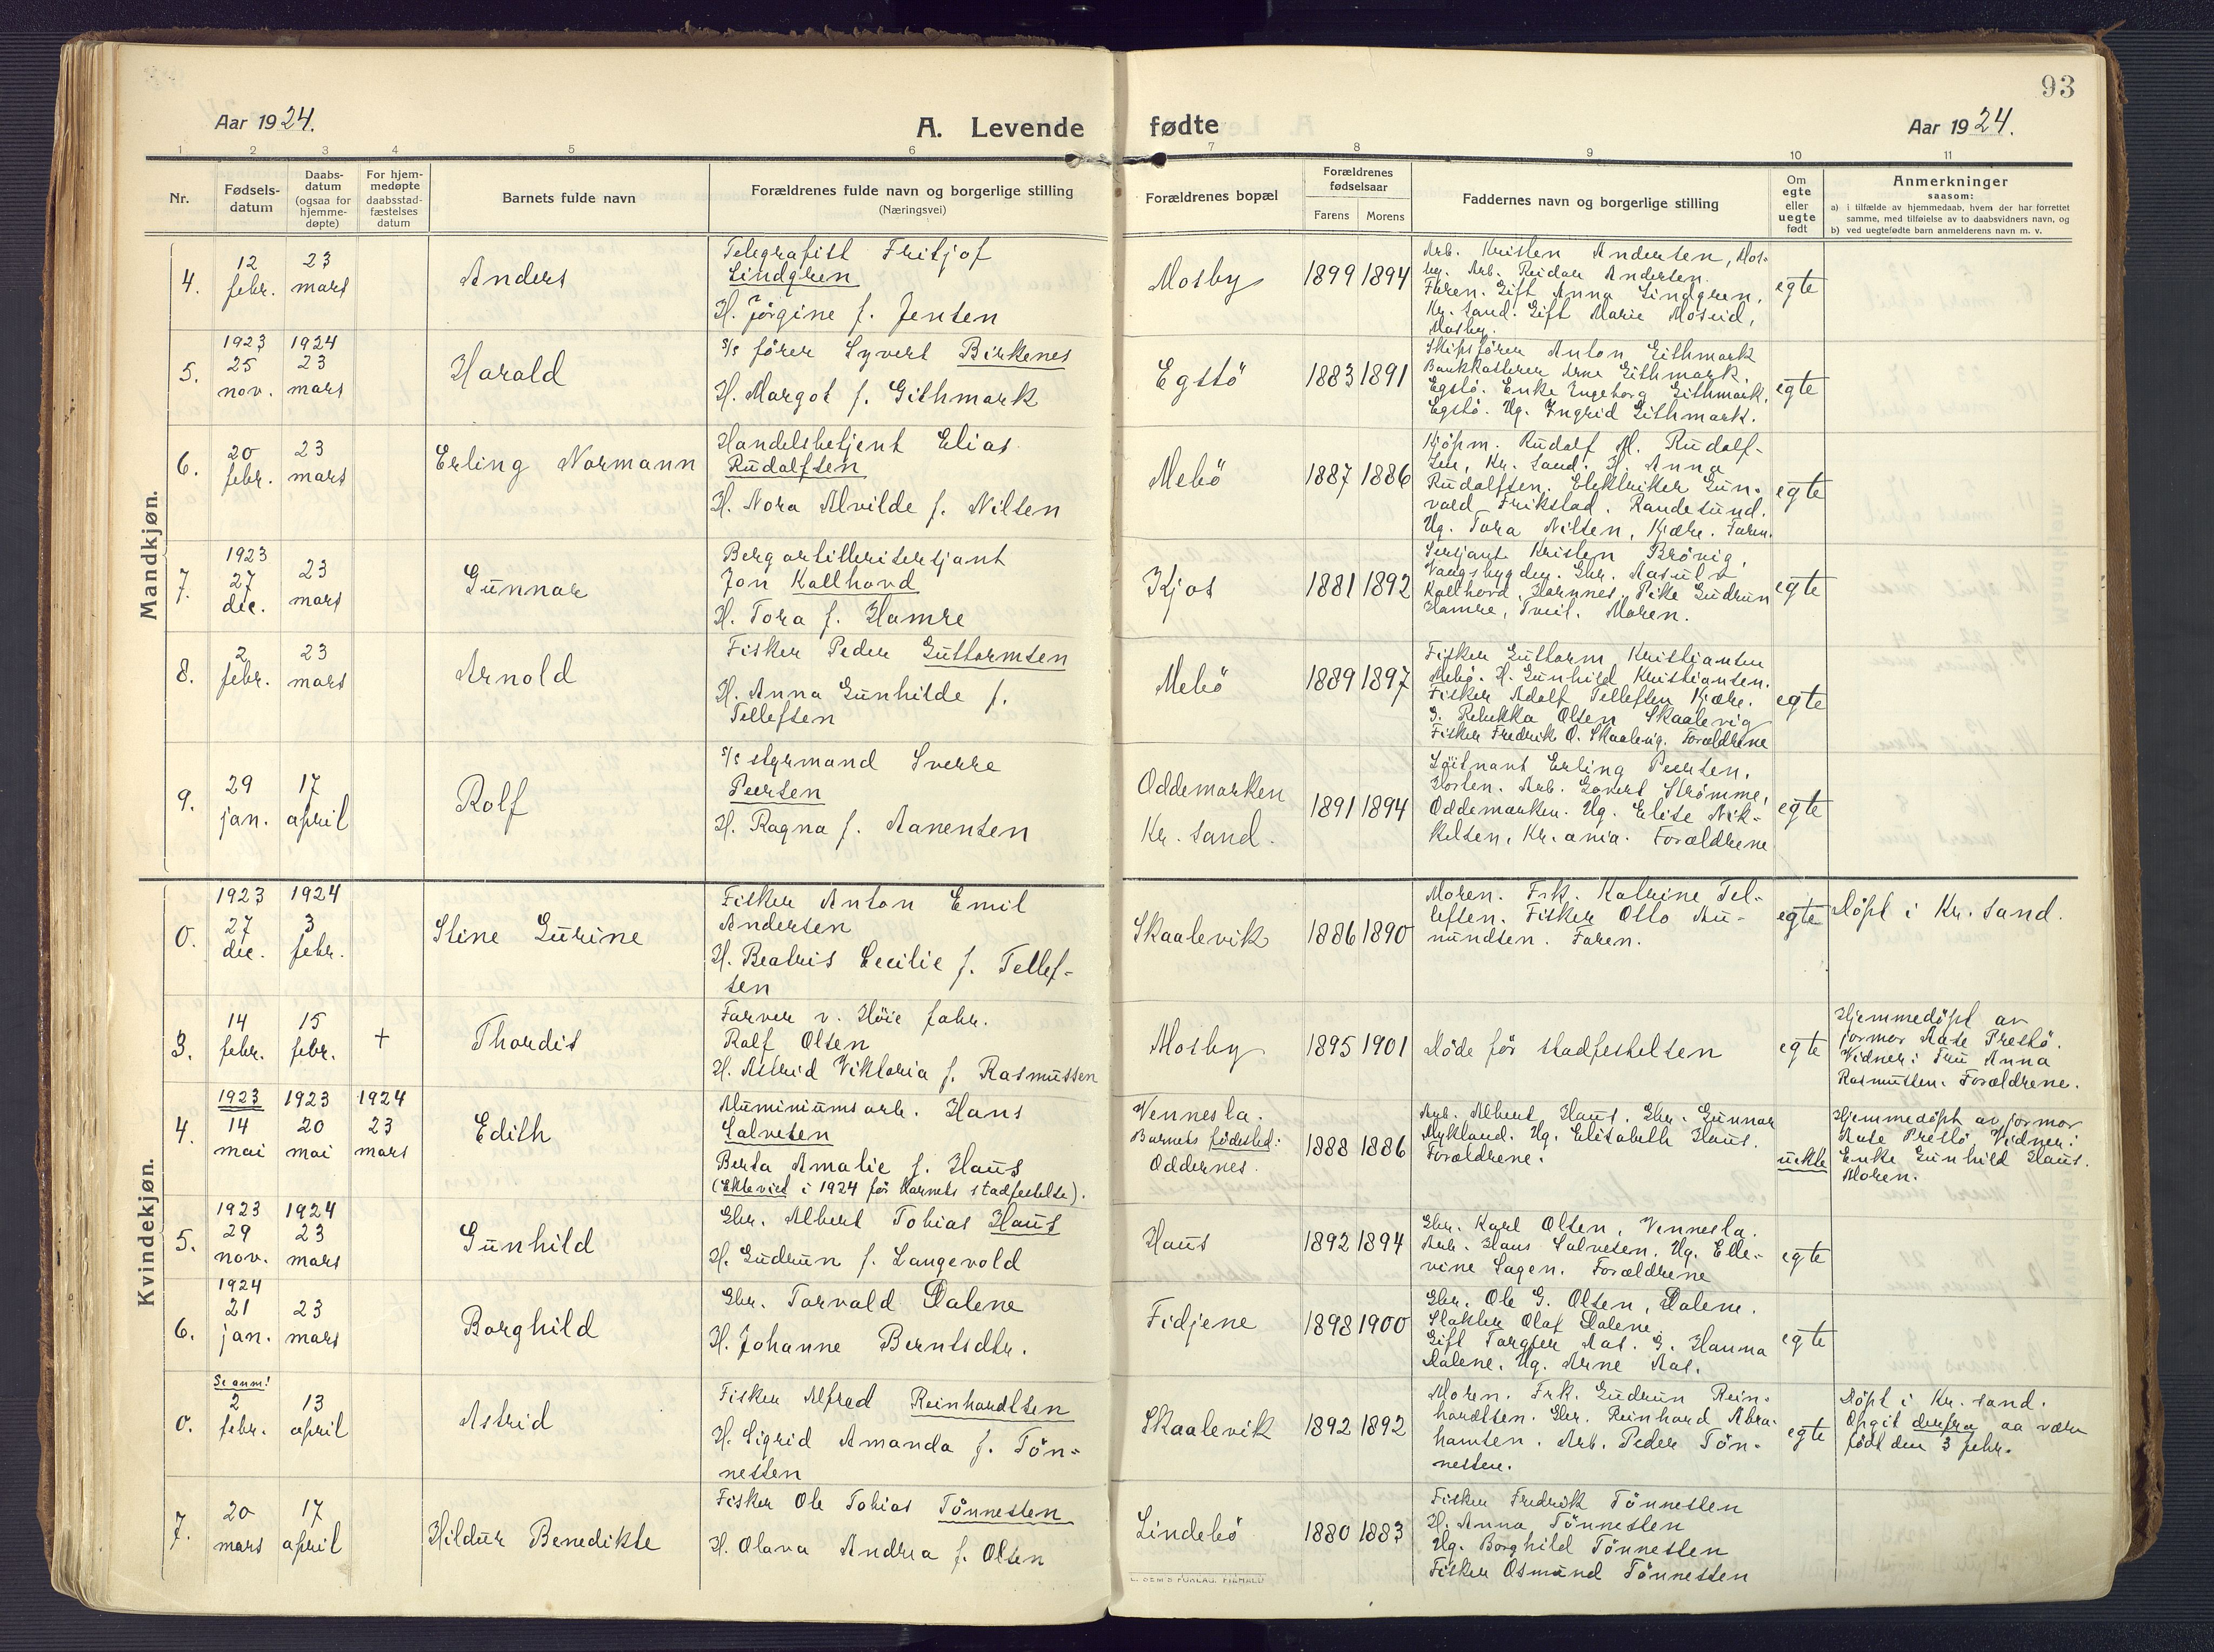 93
Aar 1924.
A. Levende fødte
Aar 1924.
1 2 3 4 5 6 7 8 9 10 11
Nr.
Fødsels-
datum
Daabs-
datum
(ogsaa for
hjemme-
døpte)
For hjem-
medøpte
daabsstad-
fæstelses
datum
Barnets fulde navn
Forældrenes fulde navn og borgerlige stilling
(Næringsvei)
Forældrenes bopæl
Forældrenes
fødselsaar
Farens Morens
Faddernes navn og borgerlige stilling
Om
egte
eller
uegte
født
Anmerkninger
saasom:
a) i tilfælde av hjemmedaab, hvem der har forrettet
samme, med tilføielse av to daabsvidners navn, og
b) ved uegtefødte barn anmelderens navn m. v.
Mandkjøn.
4.
12
febr.
23
mars
Anders
Telegrafist Fritjof
Lindgren
H. Jörgine f. Jensen
Mosby
1899 1894
Arb. Kristen Andersen, Mos-
by. Arb. Reidar Andersen.
Faren. Gift Anna Lindgren,
Kr. Sand. Gift Marie Moseid,
Mosby.
egte
5.
1923
25
nov.
1924
23
mars
Harald
s/s förer Syvert Birkenes
H. Margot f. Githmark
Egstö
1883 1891
Skipsförer Anton Githmark
Bankkasserer Arne Githmark,
Egstö. Enke Ingeborg Githmark,
Egstö. Ug. Ingrid Githmark.
egte
6.
20
febr.
23
mars
Erling Normann
Handelsbetjent Elias
Rudolfsen
H. Nora Alvilde f. Nilsen
Mebö
1887 1886
Kjöpm. Rudolf M. Rudolf-
sen, Kr. Sand. H. Anna
Rudolfsen. Elektriker Gun-
vald Frikstad. Randesund.
Ug. Tora Nilsen, Kjære. Faren.
egte
7.
1923
27
dec.
23
mars
Gunnar
Bergartillerisersjant
Jon Kallhovd
H. Tora f. Hamre
Kjos
1881 1892
Sersjant Kristen Brövig,
Vaagsbygden. Gbr. Aasulv
Kallhovd, Hornnes. Pike Gudrun
Hamre, Tveit. Moren.
egte
8.
2
febr.
23
mars
Arnold
Fisker Peder Guttormsen
H. Anna Gunhilde f.
Tellefsen
Mebö
1889 1897
Fisker Guttorm Kristiansen
Mebö. H. Gunhild Kristiansen.
Fisker Adolf Tellefsen Kjære.
G. Rebekka Olsen Skaalevig
Fisker Fredrik O. Skaalevig. Forældrene
egte
9.
29
jan.
17
april
Rolf
s/s styrmand Sverre
Peersen
H. Ragna f. Aanensen
Oddemarken
Kr. sand.
1891 1894
Löitnant Erling Peersen,
Horten. Arb. Govert Strömme,
Oddemarken. Ug. Elise Nik-
kelsen, Kr.ania. Forældrene
egte
Kvindekjøn.
0.
1923
27
dec.
1924
3
febr.
Stine Gurine
Fisker Anton Emil
Andersen
H. Beatris Cecilie f. Tellef-
sen
Skaalevik
1886 1890
Moren. Frk. Katrine Tel-
lefsen. Fisker Otto Au-
nundsen. Faren.
egte
Döpt i Kr. sand.
3.
14
febr.
15
febr.
+
Thordis
Farver v. Höie fabr.
Rolf Olsen
H. Astrid Viktoria f. Rasmussen
Mosby
1895 1901
Döde för stadfestelsen
egte
Hjemmedöpt av
jormor Aase Prestö.
Vidner: Fru Anna
Rasmussen. Forældrene.
4.
1923
14
mai
1923
20
mai
1924
23
mars
Edith
Aluminiumsarb. Hans
Salvesen
Berta Amalie f. Haus
(Ektevied i 1924 för barnets stadfestelse).
Vennesla.
Barnets fødested:
Oddernes.
1888 1886
Arb. Albert Haus. Gbr. Gunnar
Mykland. Ug. Elisabeth Haus.
Forældrene.
uekte
Hjemmedöpt av jormor
Aase Prestö. Vidner:
Enke Gunhild Haus.
Moren.
5.
1923
29
nov.
1924
23
mars
Gunhild
Gbr. Albert Tobias Haus
H. Gudrun f. Langevold
Haus
1892 1894
Gbr. Karl Olsen, Vennesla.
Arb. Hans Salvesen. Ug. Elle-
vine Sagen. Forældrene
egte
6.
1924
21
jan.
23
mars
Borghild
Gbr. Torvald Dalene
H. Johanne Berntsdtr.
Fidjene
1898 1900
Gbr. Ole G. Olsen, Dalene.
Slakter Olaf Dalene.
Gift Torgjer Aas. G. Hanna
Dalene. Ug. Arne Aas.
egte
0.
Se anm!
2
febr.
13
april
Astrid
Fisker Alfred Reinhardtsen
H. Sigrid Amanda f. Tön-
nessen
Skaalevik
1892 1892
Moren. Frk. Gudrun Rein-
hardtsen. Gbr. Reinhard Abra-
hamsen. Arb. Peder Tön-
nessen.
egte
Döpt i Kr. sand.
Opgit derfra aa være
født den 3 febr.
7.
20
mars
17
april
Hildur Benedikte
Fisker Ole Tobias Tönnessen
H. Olava Andrea f. Olsen
Lindebö
1880 1883
Fisker Fredrik Tönnessen
H. Anna Tönnessen
Ug. Borghild Tönnessen
Fisker Osmund Tönnessen